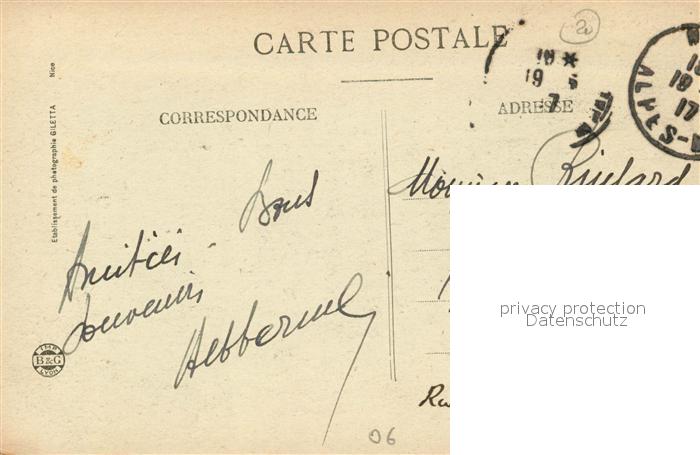 CARTE POSTALE
20
CORRESPONDANCE
ADRESSE
Etablissement de photographie GILETTA Nice
19
7
ALPES-M
17
Monsieur
Amitiés - Bons
souvenirs
IMP.
B&G
LYON
06
privacy protection
Datenschutz